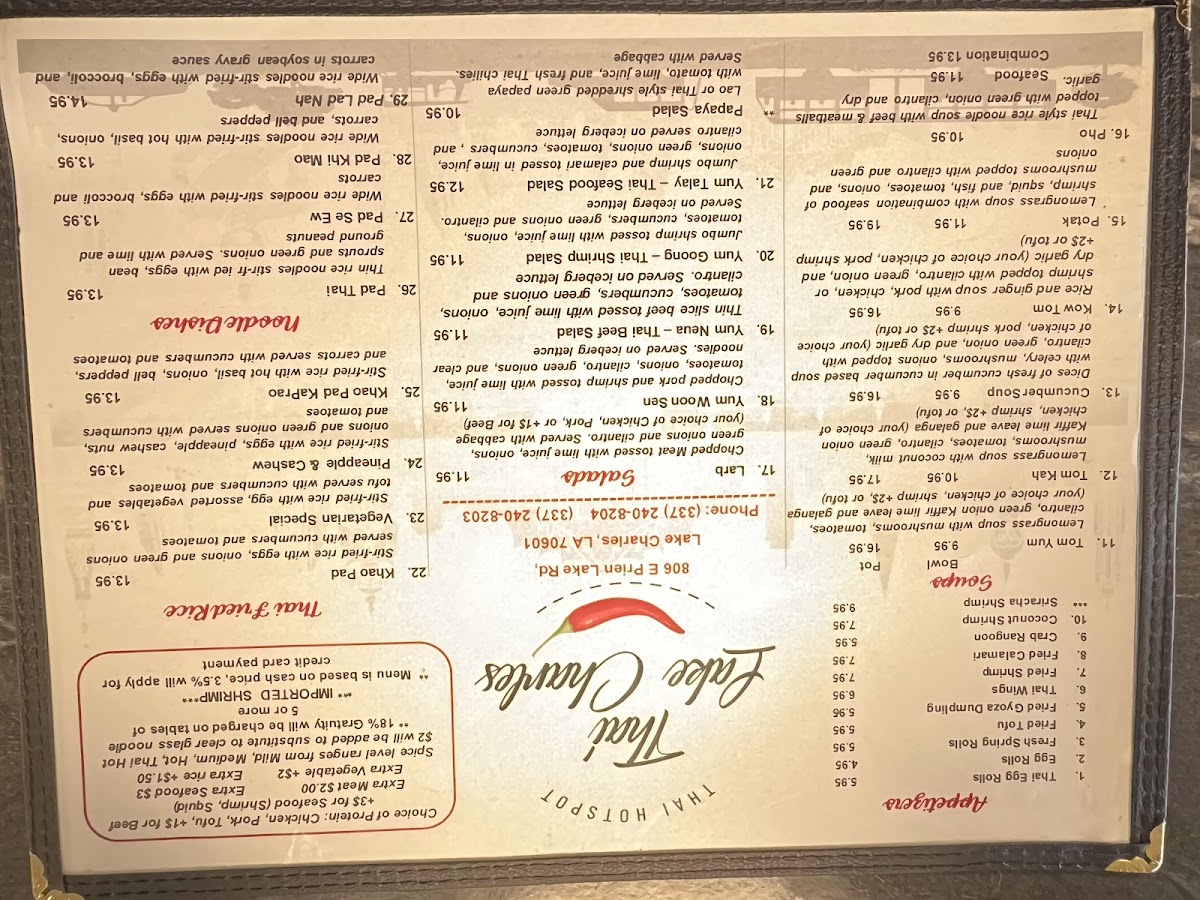 THAI HOTSPOT
Thai
Lake Charles
806 E Prien Lake Rd,
Lake Charles, LA 70601
Phone: (337) 240-8204 (337) 240-8203
Appetizers
1. Thai Egg Rolls 5.95
2. Egg Rolls 4.95
3. Fresh Spring Rolls 5.95
4. Fried Tofu 5.95
5. Fried Gyoza Dumpling 5.95
6. Thai Wings 6.95
7. Fried Shrimp 7.95
8. Fried Calamari 7.95
9. Crab Rangoon 5.95
10. Coconut Shrimp 7.95
*** Sriracha Shrimp 9.95
Soups
Bowl Pot
11. Tom Yum 9.95 16.95
Lemongrass soup with mushrooms, tomatoes,
cilantro, green onion Kaffir lime leave and galanga
(your choice of chicken, shrimp +2$, or tofu)
12. Tom Kah 10.95 17.95
Lemongrass soup with coconut milk,
mushrooms, tomatoes, cilantro, green onion
Kaffir lime leave and galanga (your choice of
chicken, shrimp +2$, or tofu)
13. Cucumber Soup 9.95 16.95
Dices of fresh cucumber in cucumber based soup
with celery, mushrooms, onions topped with
cilantro, green onion, and dry garlic (your choice
of chicken, pork shrimp +2$ or tofu)
14. Kow Tom 9.95 16.95
Rice and ginger soup with pork, chicken, or
shrimp topped with cilantro, green onion, and
dry garlic (your choice of chicken, pork shrimp
+2$ or tofu)
15. Potak 11.95 19.95
Lemongrass soup with combination seafood of
shrimp, squid, and fish, tomatoes, onions, and
mushrooms topped with cilantro and green
onions
16. Pho 10.95
Thai style rice noodle soup with beef & meatballs
topped with green onion, cilantro and dry
garlic.
Seafood 11.95
Combination 13.95
Salads
17. Larb 11.95
Chopped Meat tossed with lime juice, onions,
green onions and cilantro. Served with cabbage
(your choice of Chicken, Pork, or +1$ for Beef)
18. Yum Woon Sen 11.95
Chopped pork and shrimp tossed with lime juice,
tomatoes, onions, cilantro, green onions, and clear
noodles. Served on iceberg lettuce
19. Yum Neua – Thai Beef Salad 11.95
Thin slice beef tossed with lime juice, onions,
tomatoes, cucumbers, green onions and
cilantro. Served on iceberg lettuce
20. Yum Goong – Thai Shrimp Salad 11.95
Jumbo shrimp tossed with lime juice, onions,
tomatoes, cucumbers, green onions and cilantro.
Served on iceberg lettuce
21. Yum Talay – Thai Seafood Salad 12.95
Jumbo shrimp and calamari tossed in lime juice,
onions, green onions, tomatoes, cucumbers , and
cilantro served on iceberg lettuce
** Papaya Salad 10.95
Lao or Thai style shredded green papaya
with tomato, lime juice, and fresh Thai chilies.
Served with cabbage
Choice of Protein: Chicken, Pork, Tofu, +1$ for Beef
+3$ for Seafood (Shrimp, Squid)
Extra Meat $2.00 Extra Seafood $3
Extra Vegetable +$2 Extra rice +$1.50
Spice level ranges from Mild, Medium, Hot, Thai Hot
$2 will be added to substitute to clear glass noodle
** 18% Gratuity will be charged on tables of
5 or more
** IMPORTED SHRIMP***
** Menu is based on cash price, 3.5% will apply for
credit card payment
Thai Fried Rice
22. Khao Pad 13.95
Stir-fried rice with eggs, onions and green onions
served with cucumbers and tomatoes
23. Vegetarian Special 13.95
Stir-fried rice with egg, assorted vegetables and
tofu served with cucumbers and tomatoes
24. Pineapple & Cashew 13.95
Stir-fried rice with eggs, pineapple, cashew nuts,
onions and green onions served with cucumbers
and tomatoes
25. Khao Pad KaPrao 13.95
Stir-fried rice with hot basil, onions, bell peppers,
and carrots served with cucumbers and tomatoes
Noodle Dishes
26. Pad Thai 13.95
Thin rice noodles stir-fr ied with eggs, bean
sprouts and green onions. Served with lime and
ground peanuts
27. Pad Se Ew 13.95
Wide rice noodles stir-fried with eggs, broccoli and
carrots
28. Pad Khi Mao 13.95
Wide rice noodles stir-fried with hot basil, onions,
carrots, and bell peppers
29. Pad Lad Nah 14.95
Wide rice noodles stir-fried with eggs, broccoli, and
carrots in soybean gravy sauce